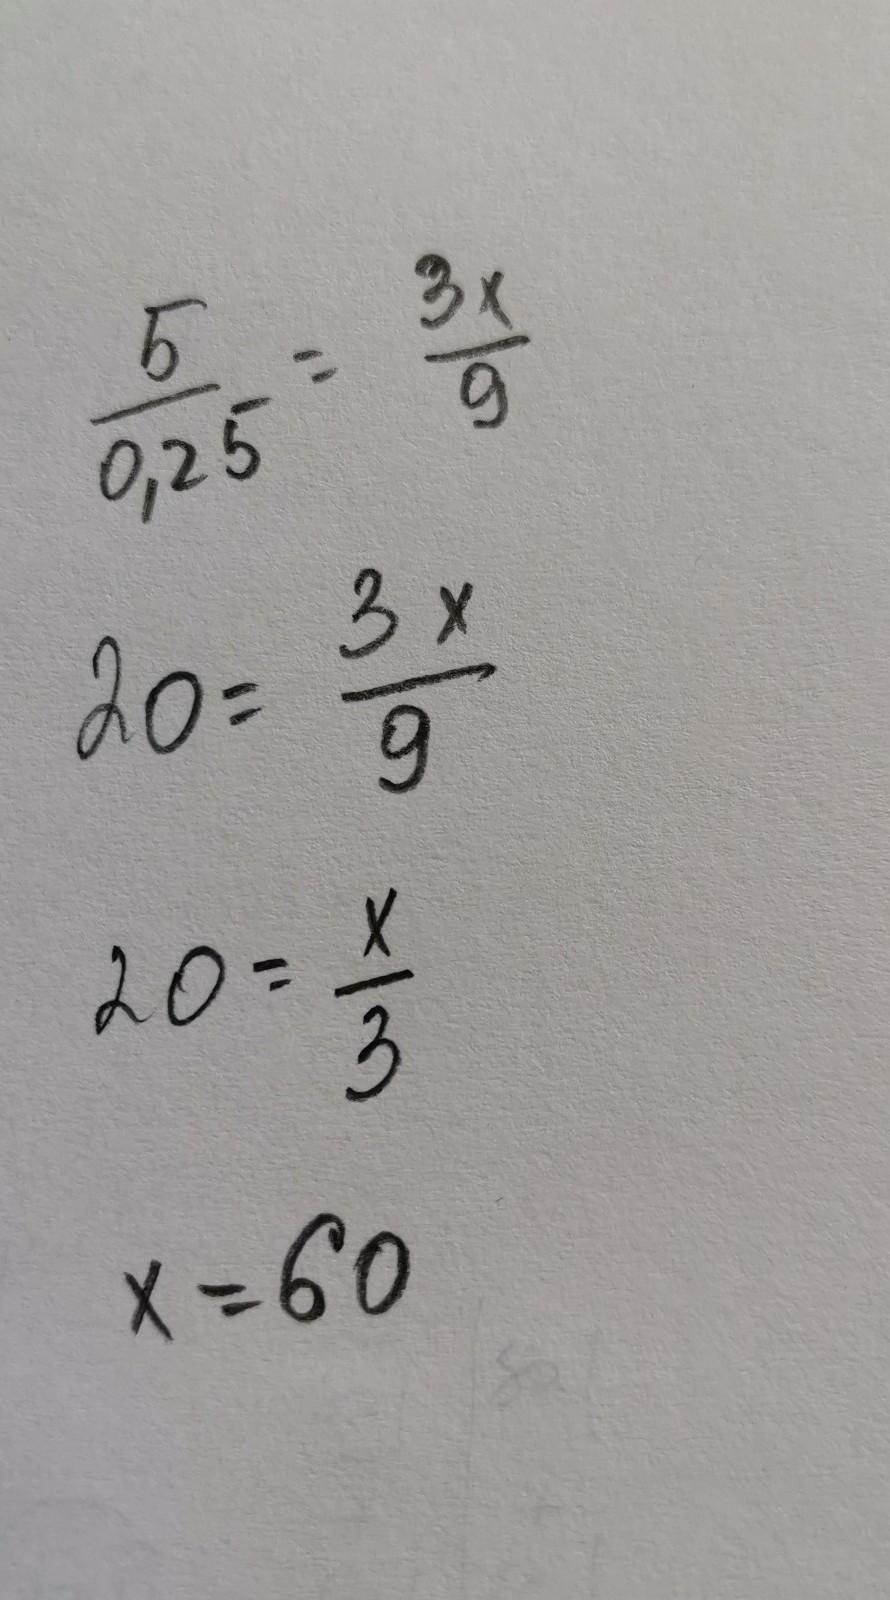 5/0,25 = 3x/9
20 = 3x/9
20 = x/3
x = 60